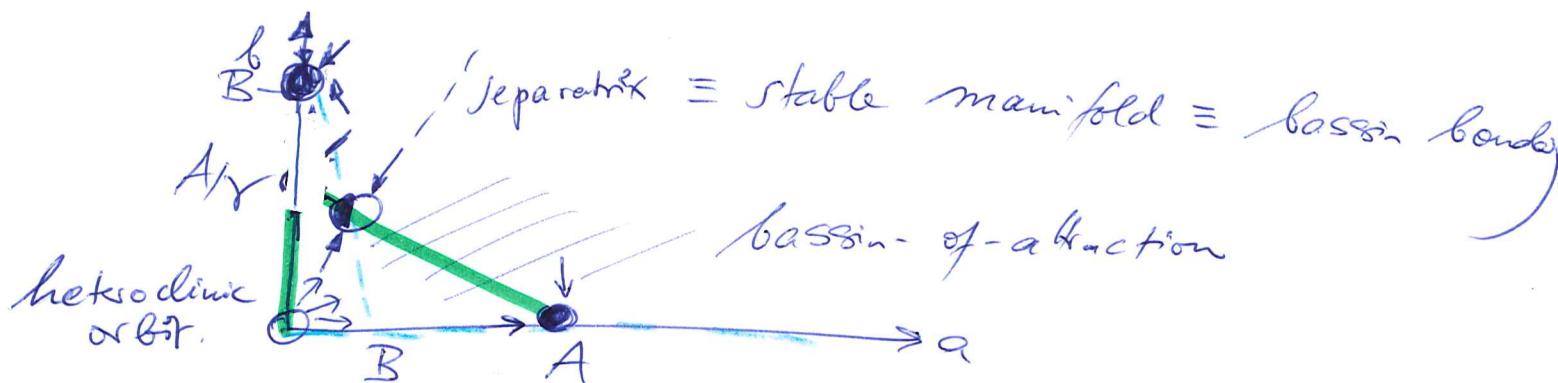 b
B
separatrix ≡ stable manifold ≡ bassin
A/γ
bassin-of-attraction
heteroclinic
orbit.
B
A
a